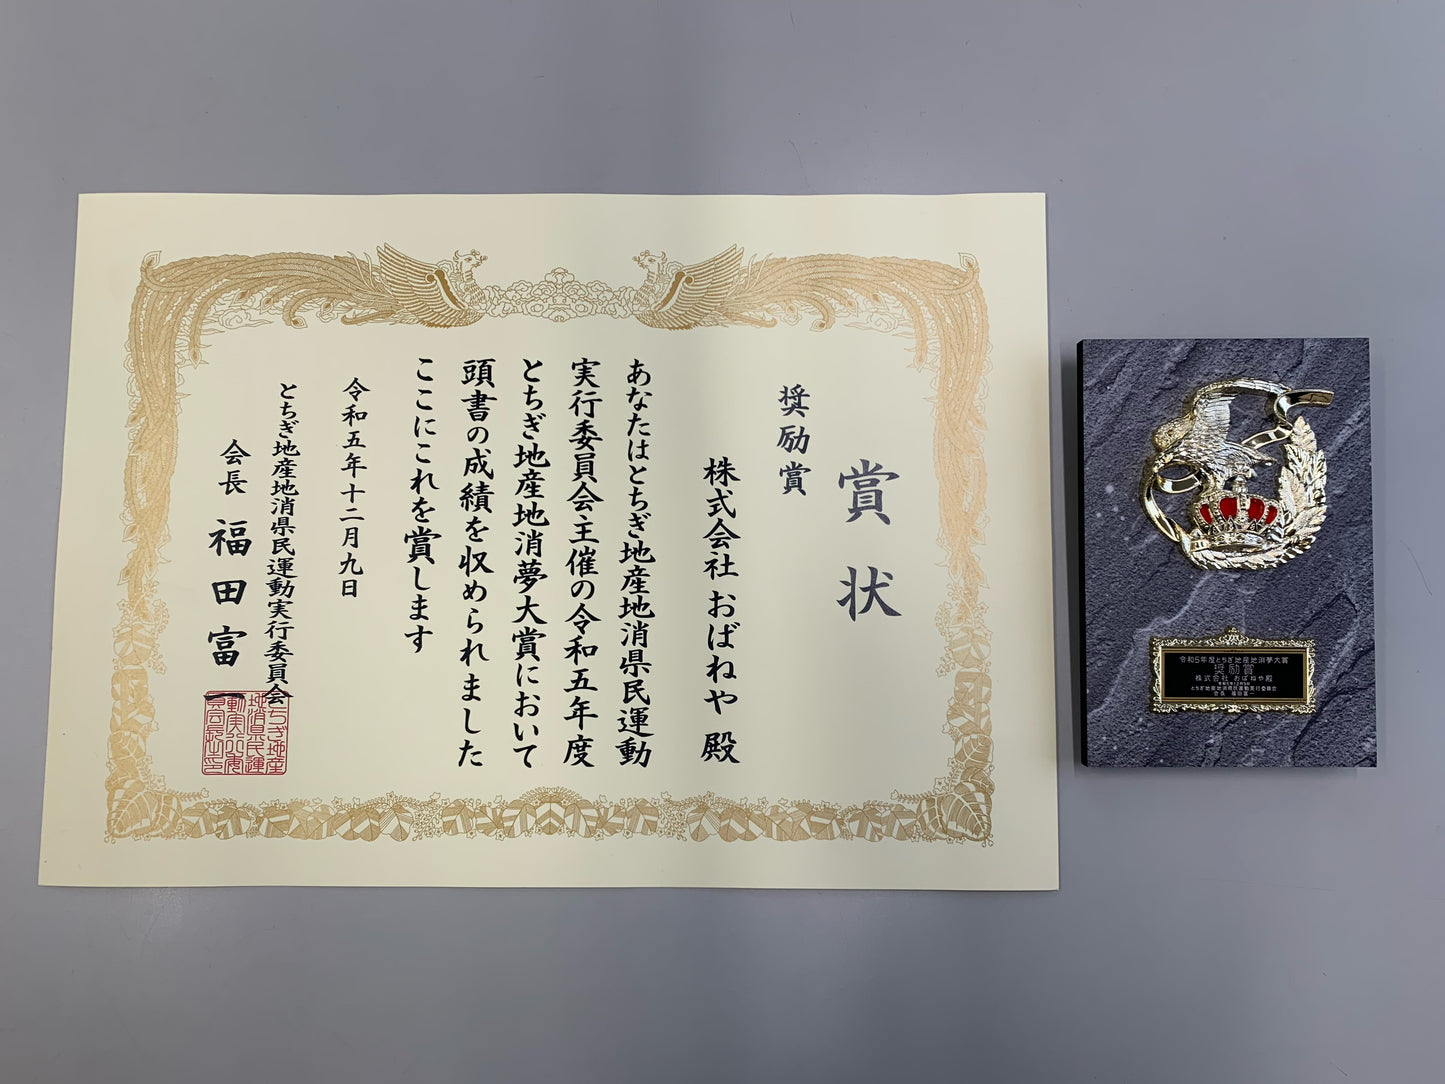 賞状
奨励賞
株式会社 おばねや 殿
あなたはとちぎ地産地消県民運動
実行委員会主催の令和五年度
とちぎ地産地消夢大賞において
頭書の成績を収められました
ここにこれを賞します
令和五年十二月九日
とちぎ地産地消県民運動実行委員会
会長 福田富一
とちぎ地産
地消県民運
動実行委
員会長之印
令和5年度とちぎ地産地消夢大賞
奨励賞
株式会社 おばねや殿
令和5年12月9日
とちぎ地産地消県民運動実行委員会
会長 福田富一